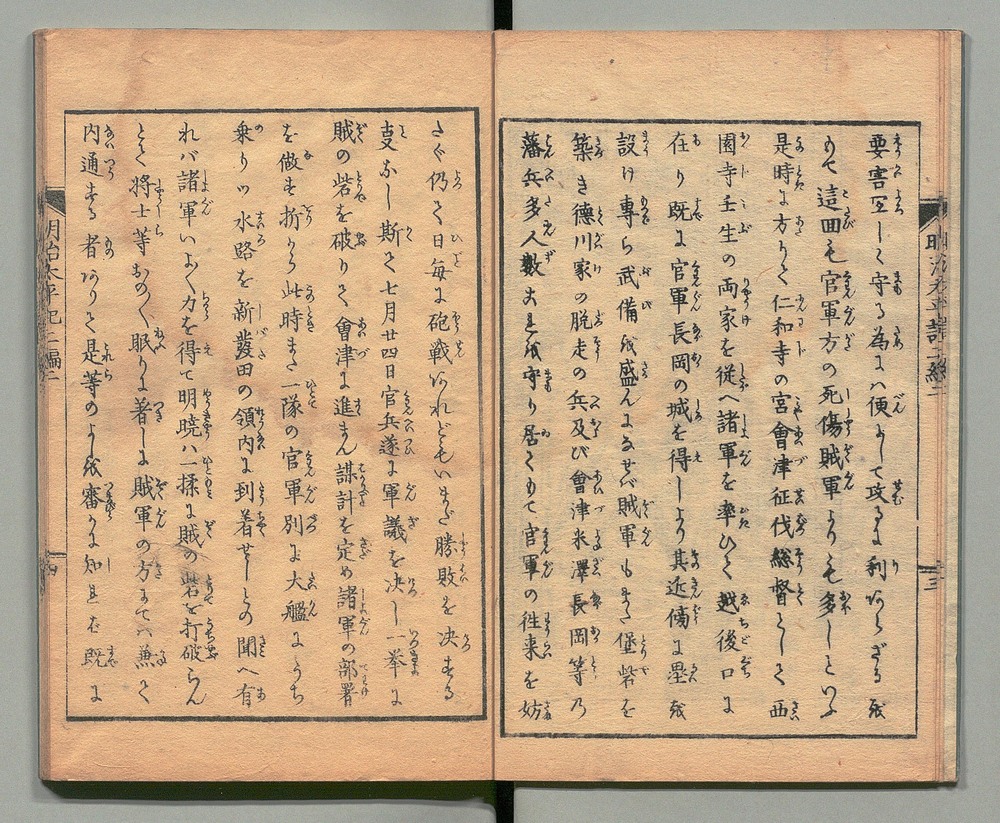 要害宜しく守る為には便よして攻るに利あらざるを
もて這回も官軍方の死傷賊軍よりも多しといふ
是時に方りて仁和寺の宮會津征伐総督として西
園寺壬生の両家を従へ諸軍を率ひて越後口に
在り既に官軍長岡の城を得しより其近傍に塁を
設け専ら武備を盛んになせば賊軍もまた堡砦を
築き徳川家の脱走の兵及び會津米澤長岡等乃
藩兵多人数これを守り居てもて官軍の徃来を妨
さぐ仍て日毎に砲戦あれどもいまだ勝敗を決する
支なし斯て七月廿四日官兵遂に軍議を决し一挙に
賊の砦を破りて會津に進まん謀計を定め諸軍の部署
を做す折から此時また一隊の官軍別に大艦にうち
乗りつ水路を新發田の領内に到着せしとの聞へ有
れバ諸軍いよ〳〵力を得て明暁ハ一揉に賊の砦を打破らん
とて将士等おの〳〵眠りに著しに賊軍の方にてハ兼て
内通する者ありて是等のよしを審かに知且在既に
明治太平記二編二
明治太平記二編二
三
四